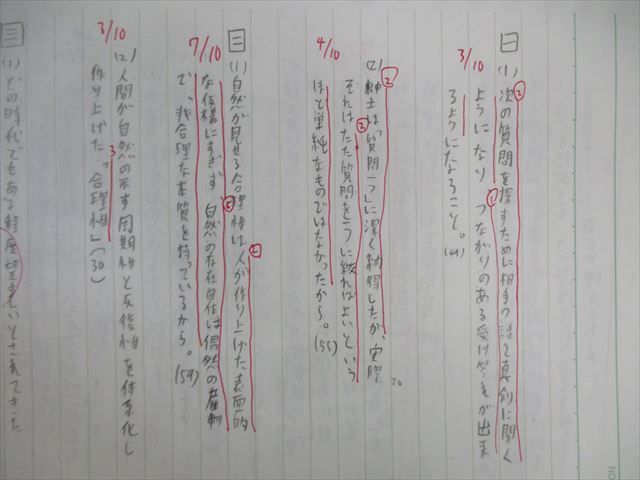 一
(1) 次の質問を探すために相手の話を真剣に聞く
ようになり つながりのある受け答えが出来
るようになること。(44)
3/10
(2) 紳士は「質問一つ」に深く納得したが、実際
それはただ質問を一つに絞ればよいという
ほど単純なものではなかったから。(55)
4/10
二
(1) 自然が見せる合理性は人が作り上げた表面的
な仮構にすぎず、自然の存在自体は偶然の産物
で、非合理な本質を持っているから。(59)
7/10
(2) 人間が自然の示す周期性と反復性を体系化し
作り上げた「合理性」(30)
3/10
三
(1) どの時代でもある程度望ましいとされてきた